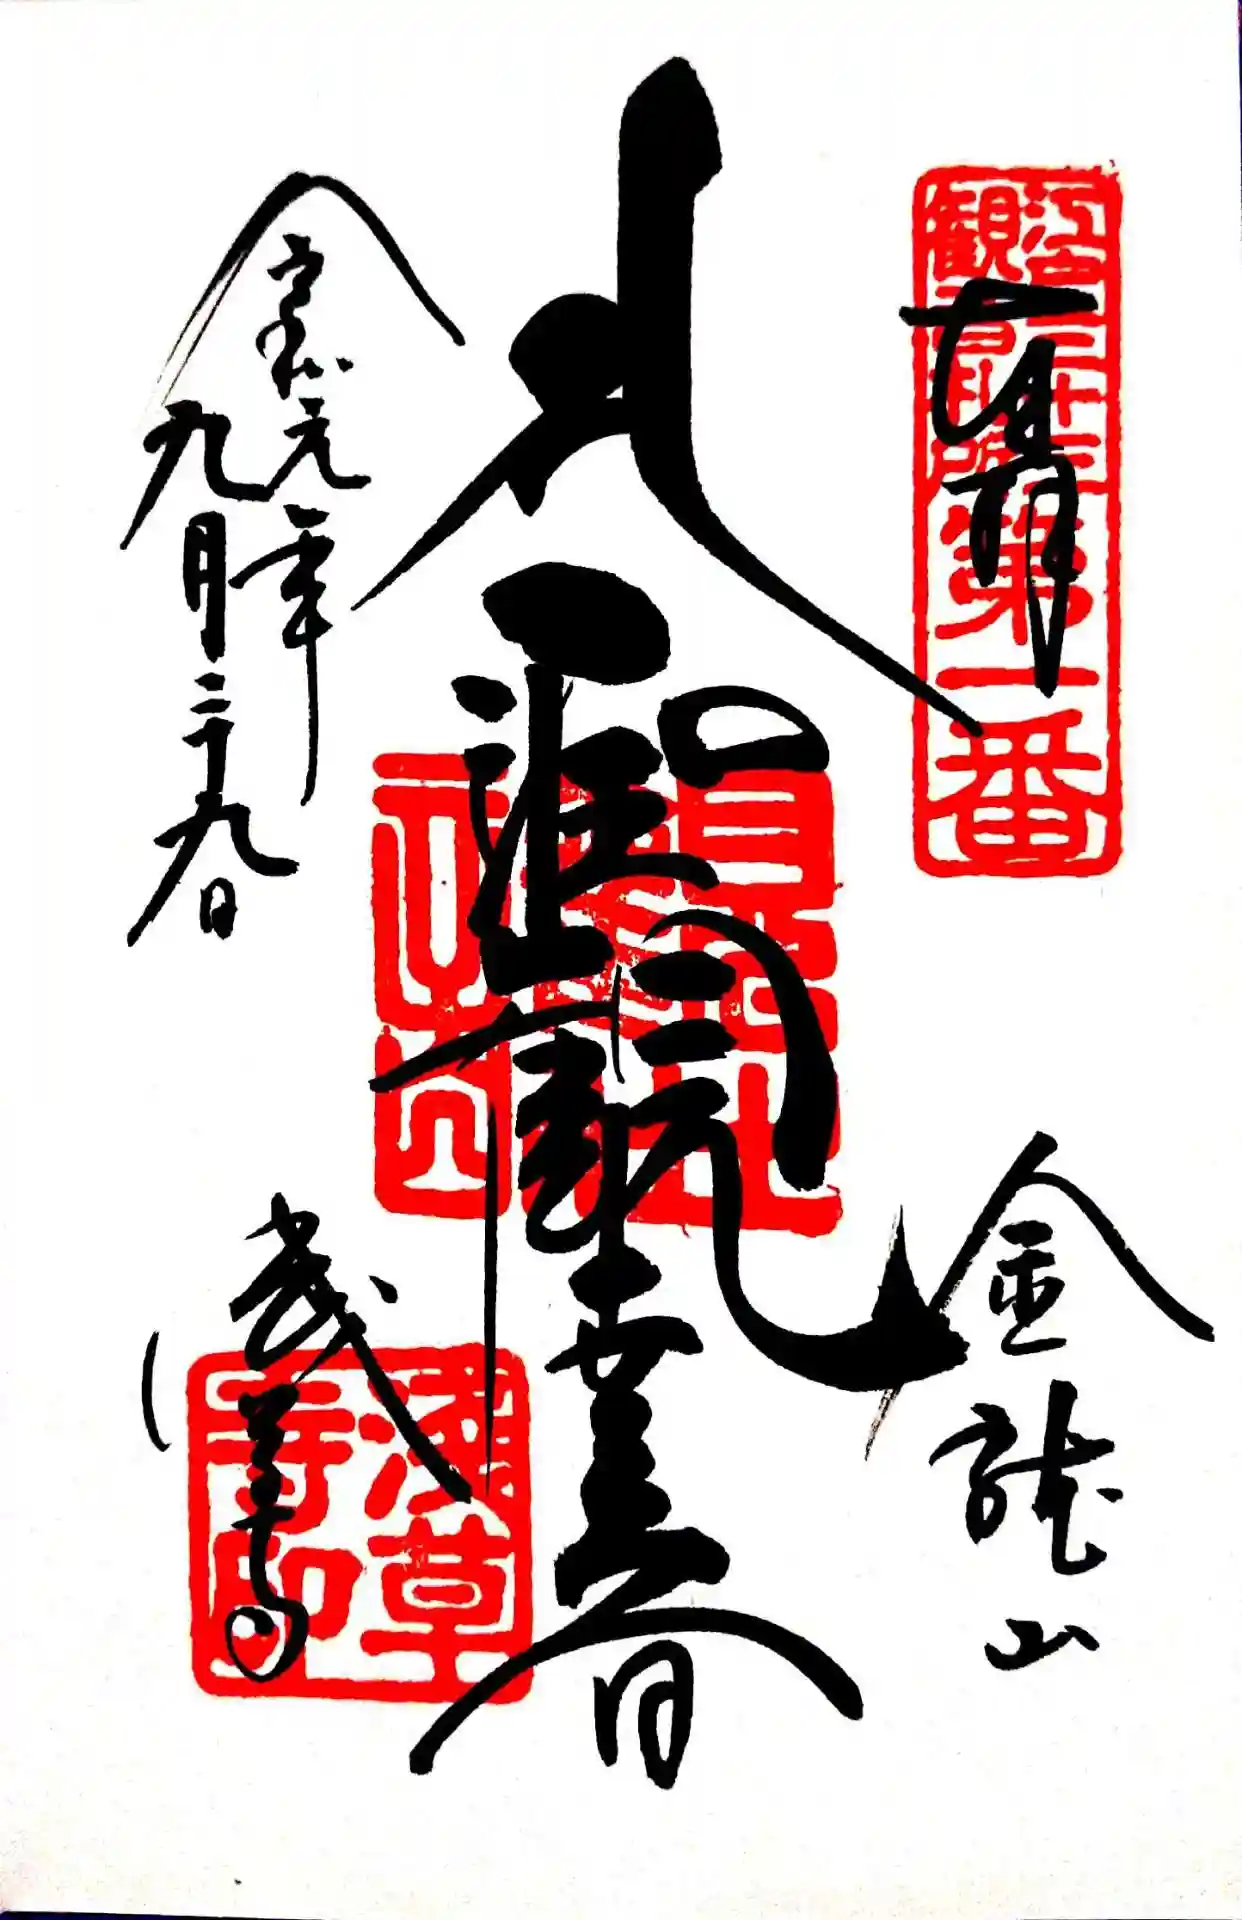 江戸三十三
観音札所
第一番
奉拝
金龍山
聖観世音
令和元年
九月二十九日
浅草寺
浅草
寺印